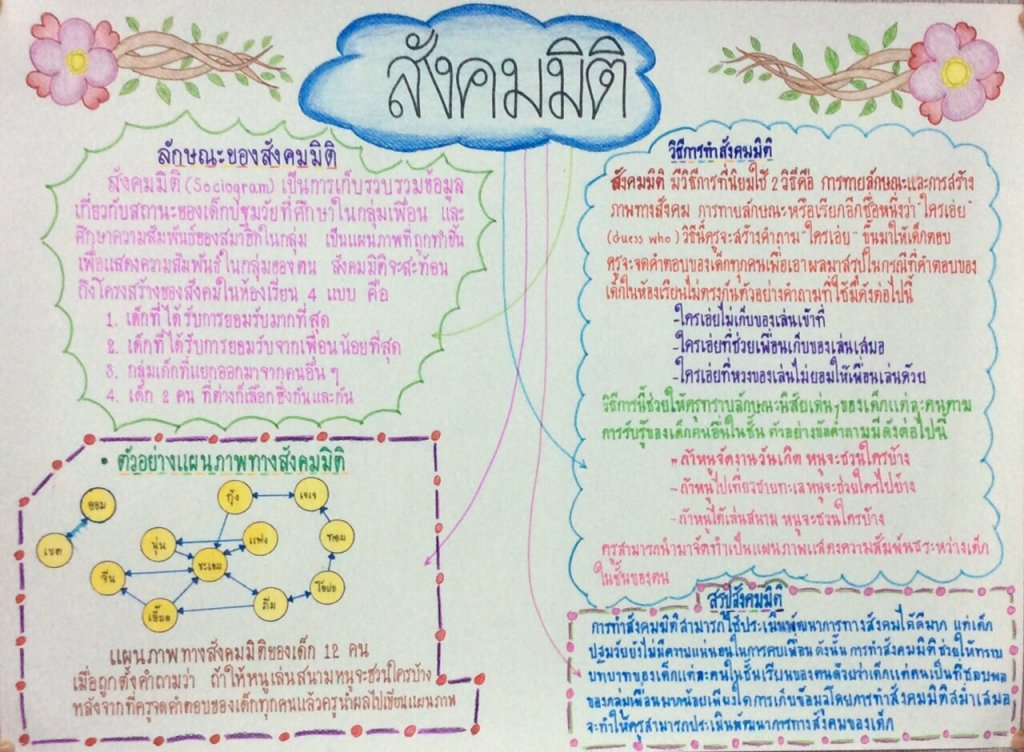 สังคมมิติ
ลักษณะของสังคมมิติ
สังคมมิติ (Sociogram) เป็นการเก็บรวบรวมข้อมูล
เกี่ยวกับสถานะของเด็กปฐมวัยที่ศึกษาในกลุ่มเพื่อน และ
ศึกษาความสัมพันธ์ของสมาชิกในกลุ่ม เป็นแผนภาพที่ถูกทำขึ้น
เพื่อแสดงความสัมพันธ์ในกลุ่มของตน สังคมมิติจะสะท้อน
ถึงโครงสร้างของสังคมในห้องเรียน 4 แบบ คือ
1. เด็กที่ได้รับการยอมรับมากที่สุด
2. เด็กที่ได้รับการยอมรับจากเพื่อนน้อยที่สุด
3. กลุ่มเด็กที่แยกออกมาจากคนอื่น ๆ
4. เด็ก 2 คน ที่ต่างก็เลือกซึ่งกันและกัน
• ตัวอย่างแผนภาพทางสังคมมิติ
ออม
เชต
กุ้ง
เจเจ
พุ่น
แฟง
ทอม
ชะเอม
จีน
โอปอ
เอี๊ยม
ภีม
แผนภาพทางสังคมมิติของเด็ก 12 คน
เมื่อถูกตั้งคำถามว่า ถ้าให้หนูเล่นสนามหนูจะชวนใครบ้าง
หลังจากที่ครูจดคำตอบของเด็กทุกคนแล้วครูนำผลไปเขียนแผนภาพ
วิธีการทำสังคมมิติ
สังคมมิติ มีวิธีการที่นิยมใช้ 2 วิธีคือ การทายลักษณะและการสร้าง
ภาพทางสังคม การทายลักษณะหรือเรียกอีกชื่อหนึ่งว่า "ใครเอ่ย"
(Guess who) วิธีนี้ครูจะสร้างคำถาม "ใครเอ่ย" ขึ้นมาให้เด็กตอบ
ครูจะจดคำตอบของเด็กทุกคนเพื่อเอาผลมาสรุปในกรณีที่คำตอบของ
เด็กในห้องเรียนไม่ตรงกันตัวอย่างคำถามที่ใช้มีดังต่อไปนี้
-ใครเอ่ยไม่เก็บของเล่นเข้าที่
-ใครเอ่ยที่ช่วยเพื่อนเก็บของเล่นเสมอ
-ใครเอ่ยที่หวงของเล่นไม่ยอมให้เพื่อนเล่นด้วย
วิธีการนี้ช่วยให้ครูทราบลักษณะนิสัยเด่นๆของเด็กแต่ละคนตาม
การรับรู้ของเด็กคนอื่นในชั้น ตัวอย่างข้อคำถามมีดังต่อไปนี้
- ถ้าหนูจัดงานวันเกิด หนูจะชวนใครบ้าง
- ถ้าหนูไปเที่ยวชายทะเลหนูจะชวนใครไปบ้าง
- ถ้าหนูได้เล่นสนาม หนูจะชวนใครบ้าง
ครูสามารถนำมาจัดทำเป็นแผนภาพแสดงความสัมพันธ์ระหว่างเด็ก
ในชั้นของตน
สรุปสังคมมิติ
การทำสังคมมิติสามารถใช้ประเมินพัฒนาการทางสังคมได้ดีมาก แต่เด็ก
ปฐมวัยยังไม่มีความแน่นอนในการคบเพื่อน ดังนั้น การทำสังคมมิติ ช่วยให้ทราบ
บทบาทของเด็กแต่ละคนในชั้นเรียนของตนด้วยว่าเด็กแต่คนเป็นที่ชื่นชอบพอ
ของกลุ่มเพื่อนมากน้อยเพียงใด การเก็บข้อมูลโดยการทำสังคมมิติสม่ำเสมอ
จะทำให้ครูสามารถประเมินพัฒนาการทางสังคมของเด็ก